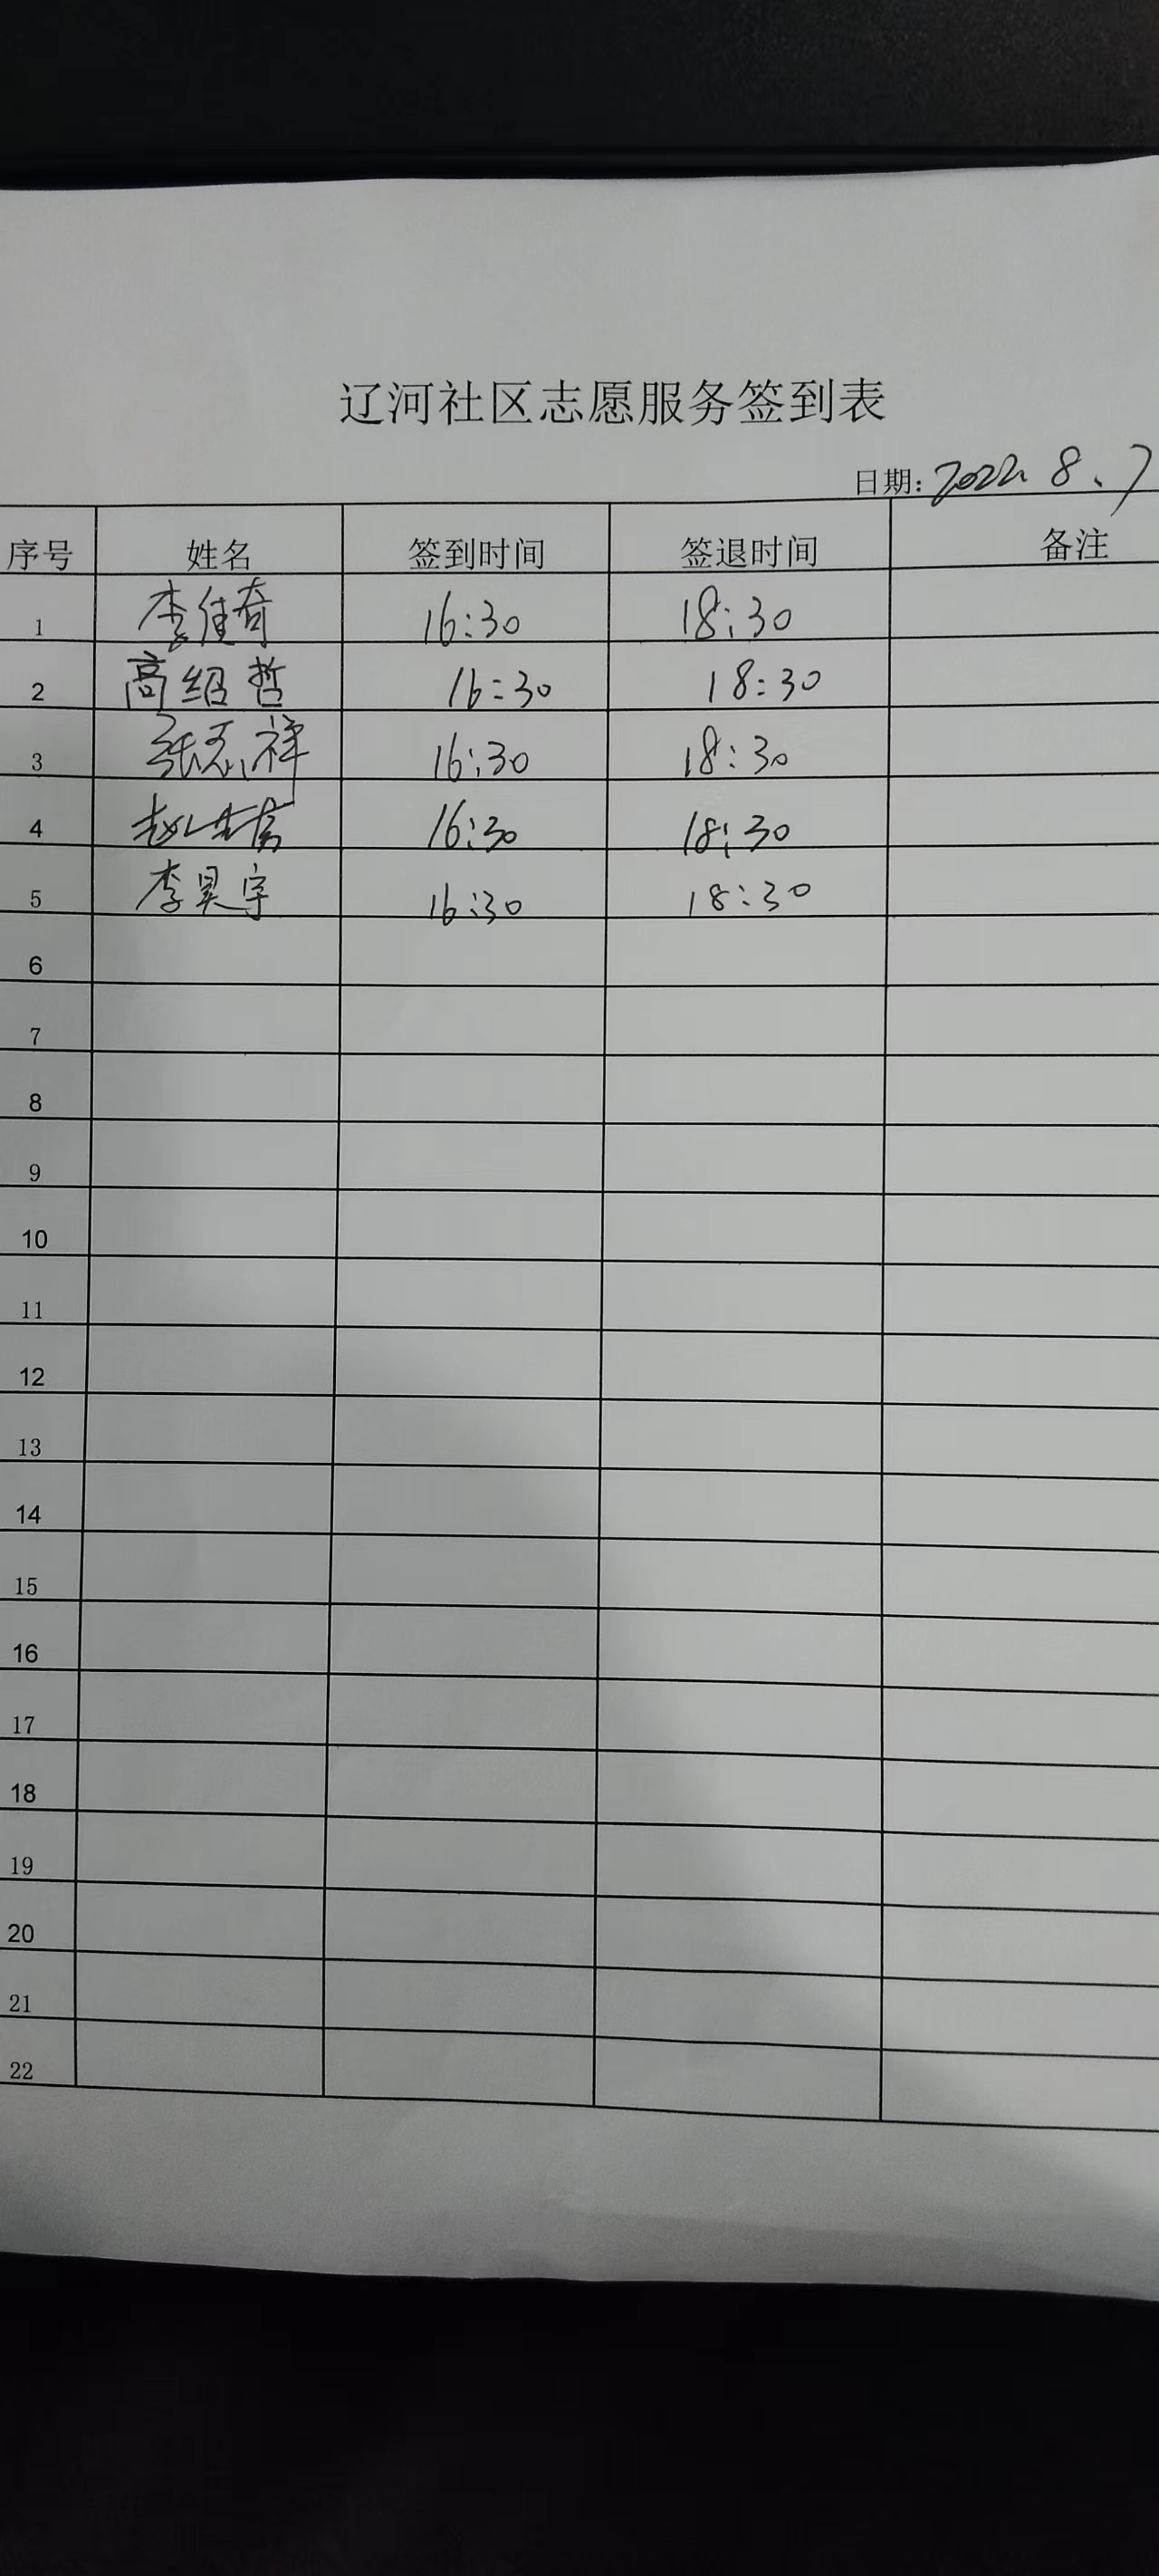 辽河社区志愿服务签到表
日期: 2022.8.7
序号 姓名 签到时间 签退时间 备注
1 李佳奇 16:30 18:30
2 高绍哲 16:30 18:30
3 张志祥 16:30 18:30
4 赵 16:30 18:30
5 李昊宇 16:30 18:30
6
7
8
9
10
11
12
13
14
15
16
17
18
19
20
21
22